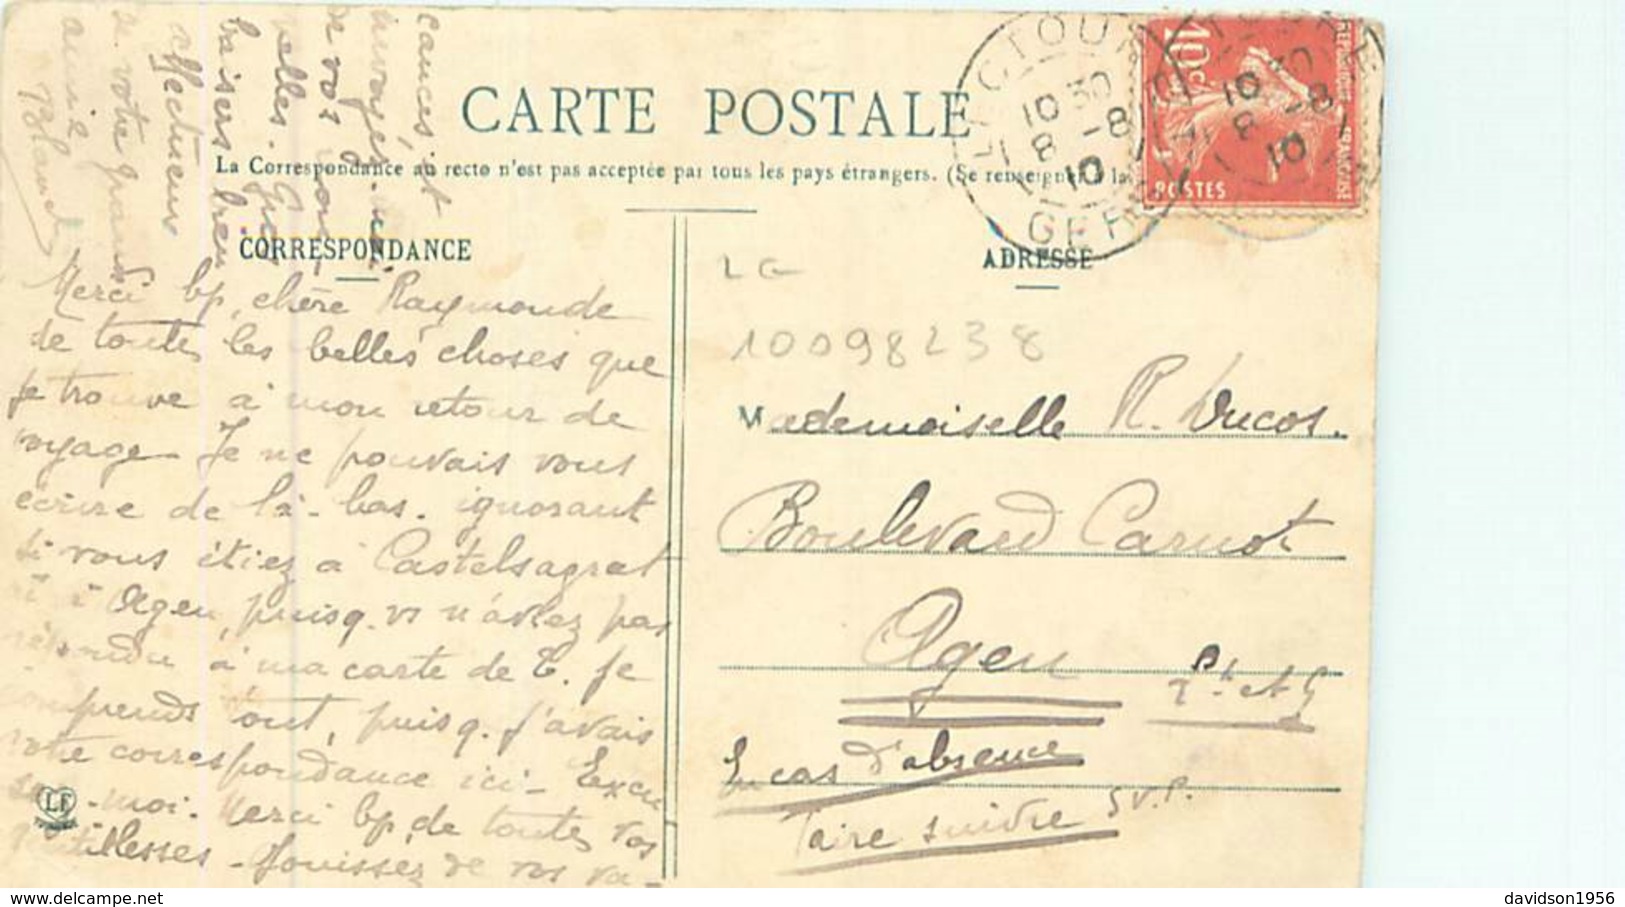 CARTE POSTALE
La Correspondance au recto n'est pas acceptée par tous les pays étrangers. (Se renseigner à la
CORRESPONDANCE
ADRESSE
LECTOURE
10 30
8 -8
10
GERS
10 30
8 -8
10
10c
REPUBLIQUE FRANÇAISE
POSTES
Merci bp, chère Raymonde
de toutes les belles choses que
je trouve à mon retour de
voyage. Je ne pouvais vous
écrire de là-bas. ignorant
si vous étiez à Castelsagrat
ni à Agen, puisq. vs n'aviez pas
répondu à ma carte de T. Je
comprends tout, puisq. j'avais
votre correspondance ici - Excu
sez-moi. Merci bp, de toutes vos
gentillesses - Jouissez de vos va-
cances, et
envoyez-moi
de vos nou-
velles. Gros
baisers bien
affectueux
de votre grande
amie
Blanche
LG
10098238
Mademoiselle R. Ducos.
Boulevard Carnot
Agen
Lt et G
En cas d'absence
faire suivre S.V.P.
LF
davidson1956